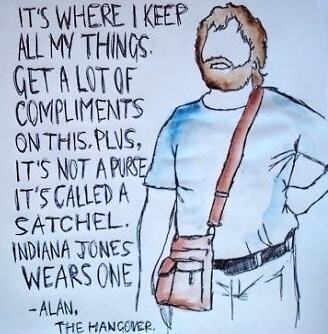 IT'S WHERE I KEEP
ALL MY THINGS.
GET A LOT OF
COMPLIMENTS
ON THIS. PLUS,
IT'S NOT A PURSE
IT'S CALLED A
SATCHEL.
INDIANA JONES
WEARS ONE
-ALAN,
THE HANGOVER.